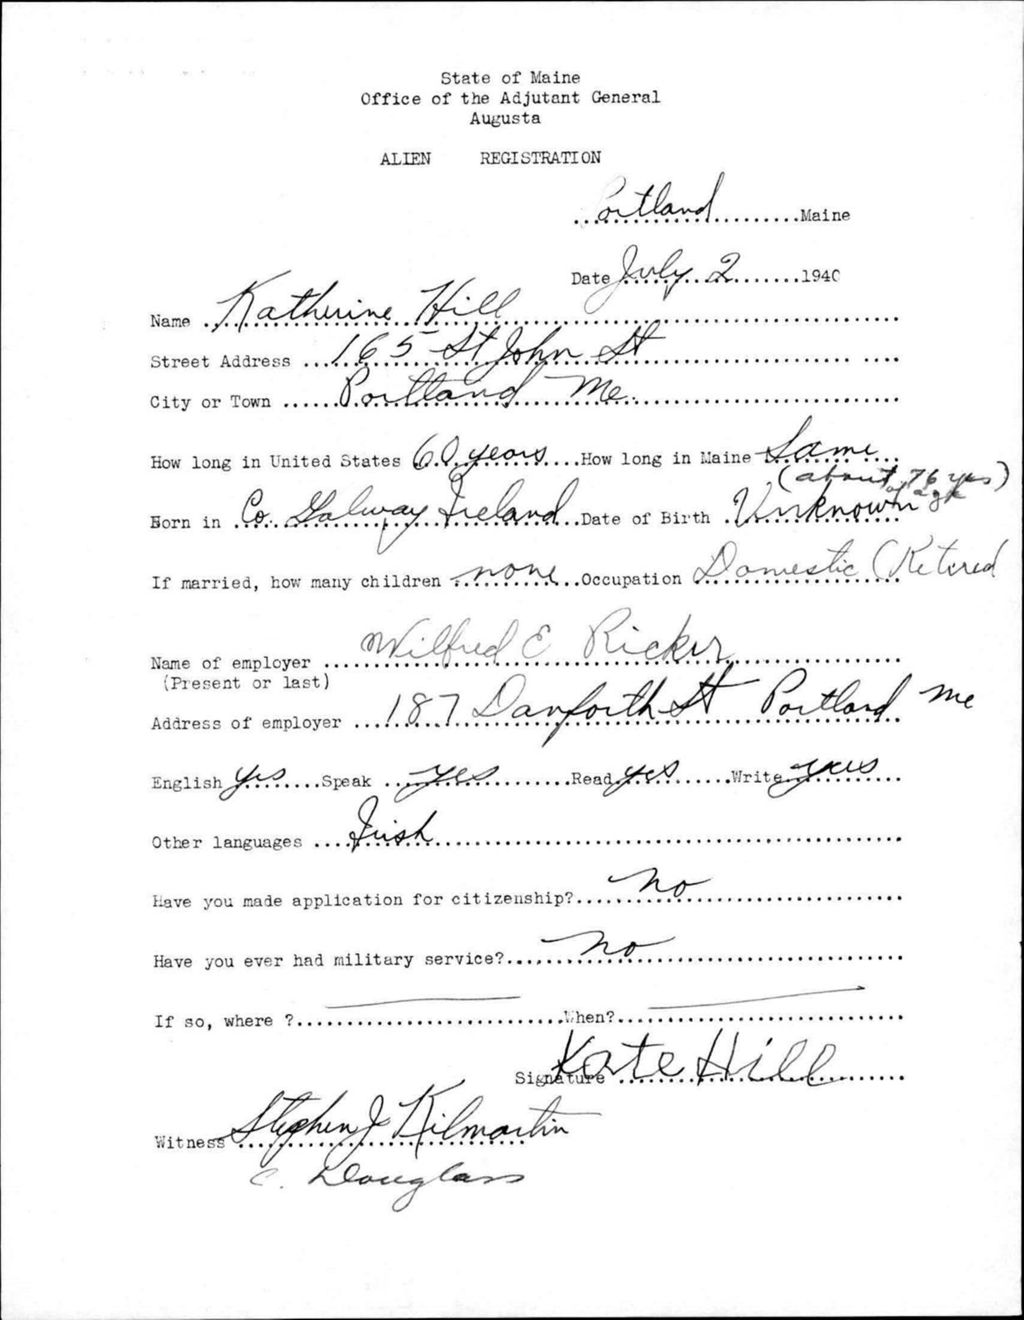 State of Maine
Office of the Adjutant General
Augusta
ALIEN REGISTRATION
Portland Maine
Date July 2 1940
Name Katherine Hill
Street Address 165 St John St
City or Town Portland Me.
How long in United States 60 years How long in Maine Same
(about 76 yrs)
of age
Born in Co. Galway Ireland Date of Birth Unknown
If married, how many children none Occupation Domestic (Retired
Name of employer Wilfred E Ricker
(Present or last)
Address of employer 187 Danforth St Portland Me
English yes Speak yes Read yes Write yes
Other languages Irish
Have you made application for citizenship? no
Have you ever had military service? no
If so, where ? When?
Signature Kate Hill
Witness Stephen J Kilmartin
C. Douglass